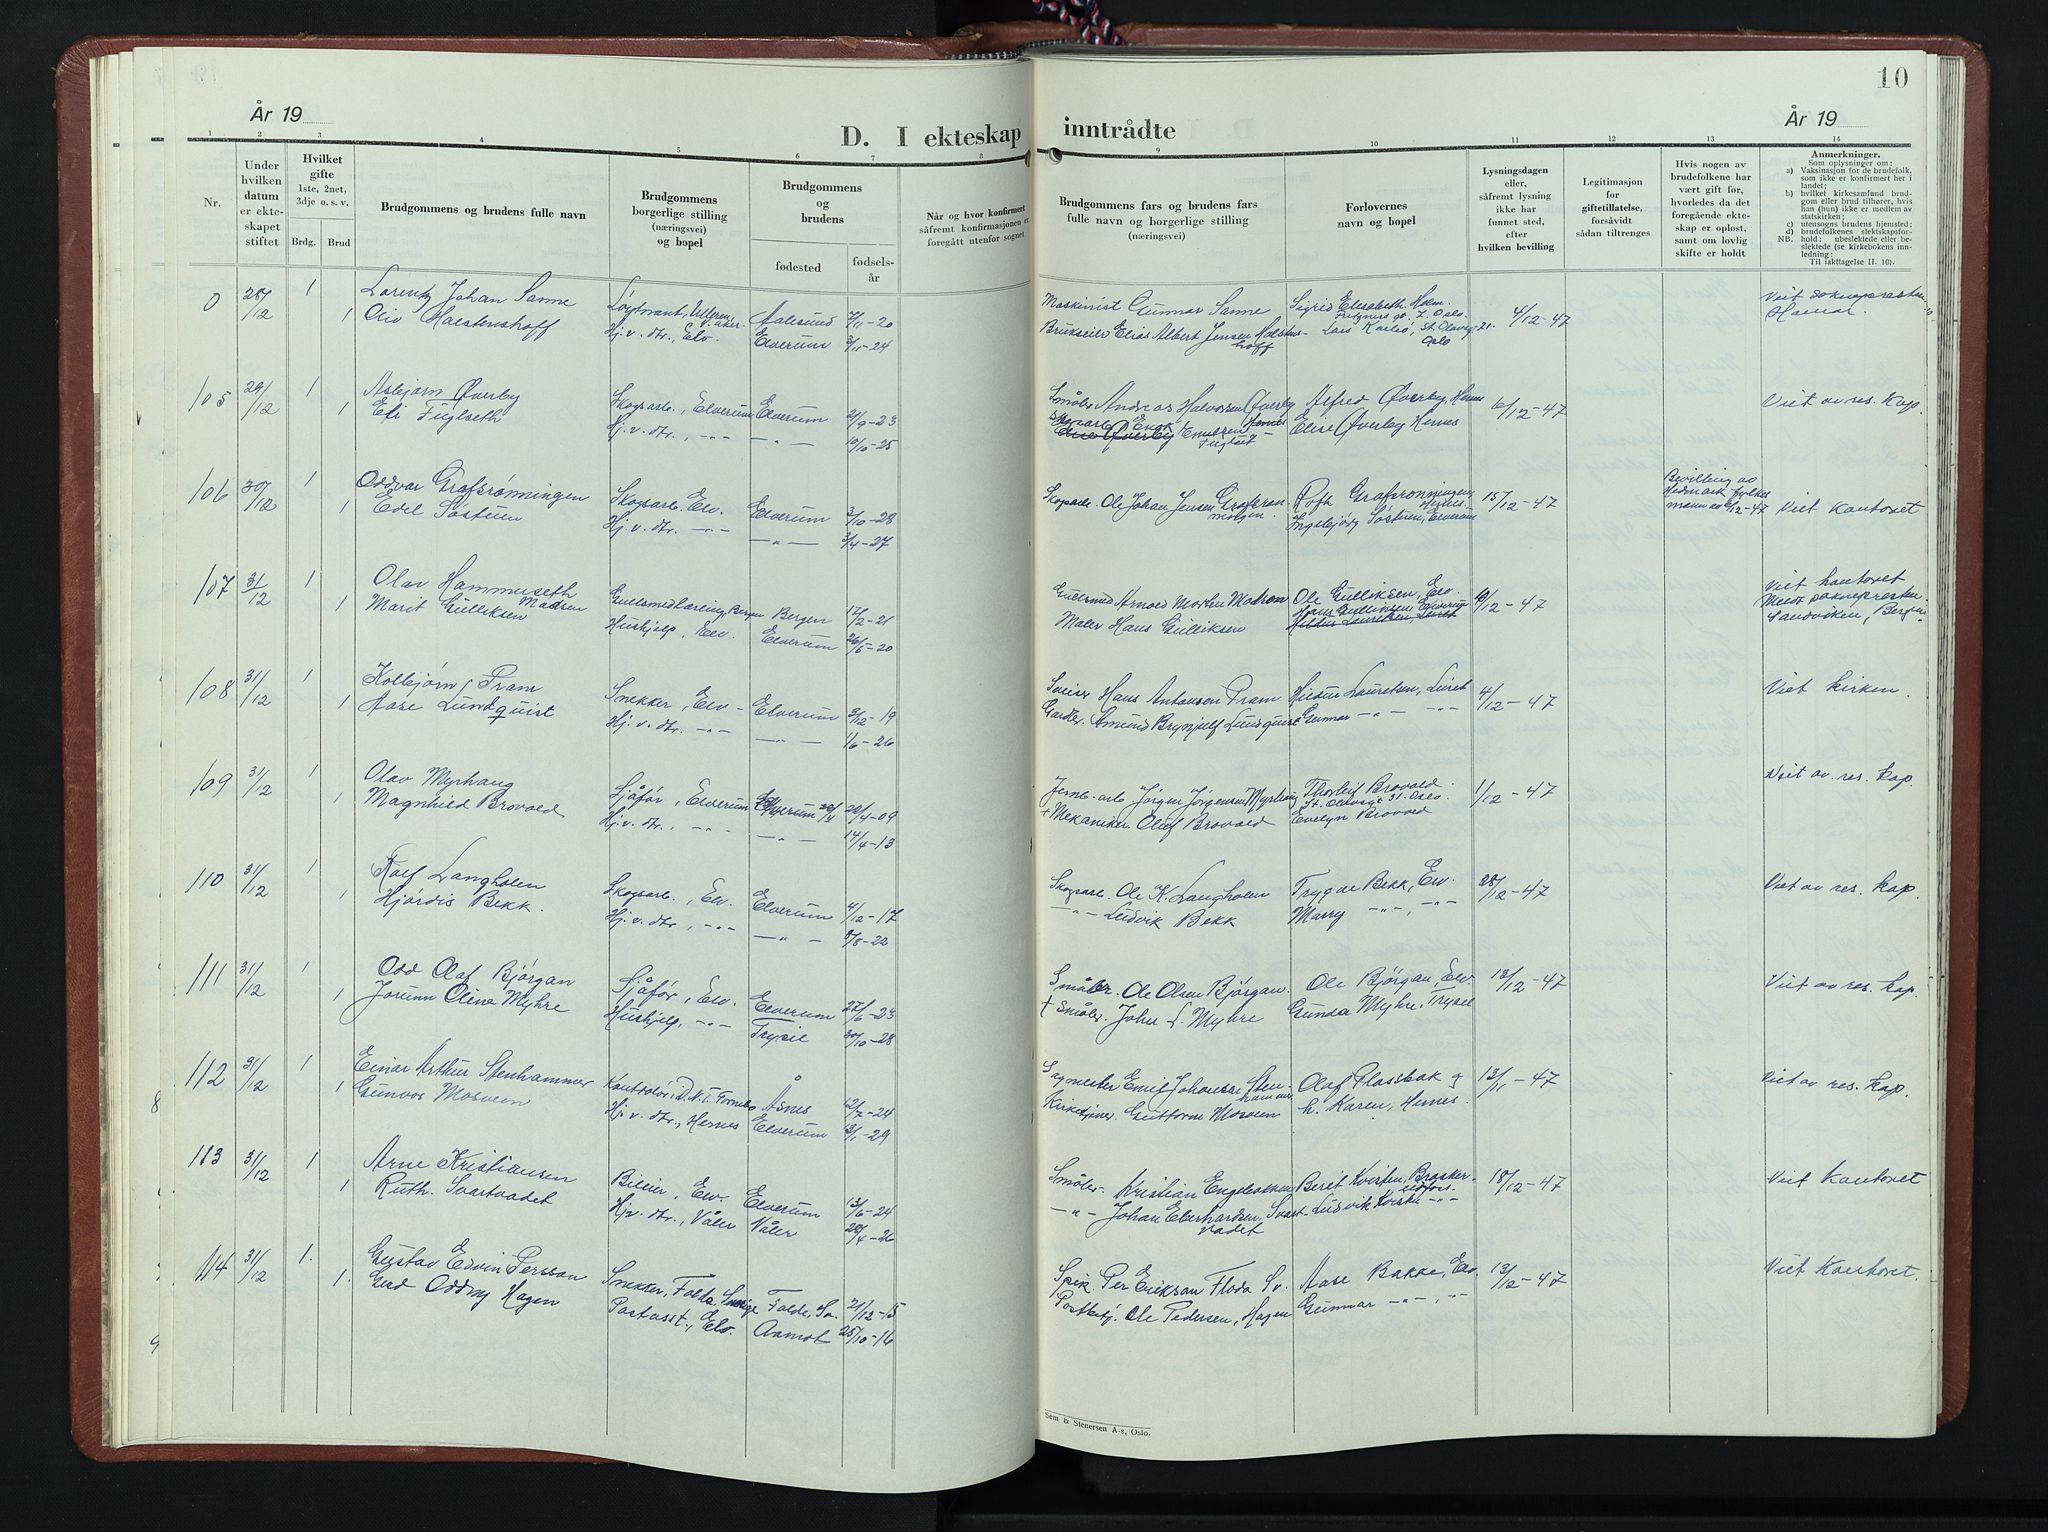 10
År 19
År 19
D. I ekteskap inntrådte
1 2 3 4 5 6 7 8 9 10 11 12 13 14
Nr.
Under
hvilken
datum
er ekte-
skapet
stiftet
Hvilket
gifte
1ste, 2net,
3dje o. s. v.
Brdg. Brud
Brudgommens og brudens fulle navn
Brudgommens
borgerlige stilling
(næringsvei)
og bopel
Brudgommens
og
brudens
fødested
fødsels-
år
Når og hvor konfirmert
såfremt konfirmasjonen er
foregått utenfor sognet
Brudgommens fars og brudens fars
fulle navn og borgerlige stilling
(næringsvei)
Forlovernes
navn og bopel
Lysningsdagen
eller,
såfremt lysning
ikke har
funnet sted,
efter
hvilken bevilling
Legitimasjon
for
giftetillatelse,
forsåvidt
sådan tiltrenges
Hvis nogen av
brudefolkene har
vært gift før,
hvorledes da det
foregående ekte-
skap er opløst,
samt om lovlig
skifte er holdt
Anmerkninger.
Som oplysninger om:
a) Vaksinasjon for de brudefolk,
som ikke er konfirmert her i
landet;
b) hvilket kirkesamfund brud-
gom eller brud tilhører, hvis
han (hun) ikke er medlem av
statskirken;
c) utensogns brudens hjemsted;
d) brudefolkenes slektskapsfor-
NB. hold: ubeslektede eller be-
slektede (se kirkebokens inn-
ledning:
Til iakttagelse II. 10).
0 28/12 1 Lorentz Johan Sanne Aalesund 7/11-20 Maskinist Gunnar Sanne Sigrid Elisabeth Holm 4/12-47
1 Oliv Holstenshoff Hj. v. dtr., Elv. Elverum 3/11-24 Elias Albert Jensen Holstens-
hoff Oslo Hamar
105 29/12 1 Asbjørn Øverby Skogsarb., Elverum Elverum 21/9-23 Småbr. Andreas Halvorsen Øverby Alfred Øverby, Hernes 6/12-47 Viet av res. kap.
1 Eli Fuglseth Hj. v. dtr., -"- -"- 10/10-25 Elise Øverby Hernes
106 30/12 1 Oddvar Grafsrønningen Skogsarb. Elv. Elverum 3/10-28 Skogsarb. Ole Johan Jensen 15/12-47 Bevilling av
Hedmark fylkes
mann av 6/12-47 Viet kontoret
1 Edel Søstuen Hj. v. dtr. -"- -"- 3/4-27 Ingebjørg Søstuen, Elverum
107 31/12 1 Olav Hammerseth
Madsen Gullsmedlærling, Bergen Bergen 17/2-21 Gullsmed Arnold Morten Madsen Ole Gulliksen, Elv. 10/12-47 Viet kontoret
1 Marit Gulliksen Hushjelp, Elv. Elverum 26/5-20 Maler Hans Gulliksen Meldt soknepresten
Sandviken, Bergen
108 31/12 1 Kolbjørn Pram Snekker, Elv. Elverum 3/12-19 Hans Antonsen Pram Hildur Lauretsen, Luret 4/12-47 Viet kirken.
1 Aase Lundquist Hj. v. dtr. -"- -"- 1/6-26 Gardbr. Amund Brynjulf Lundquist Gunnar -"- -"-
109 31/12 1 Olav Myrhaug Sjåfør, Elverum Elverum 20/4-09 Jernb.arb. Jørgen Jørgensen Myrhaug Thorleif Brovold 1/12-47 Viet av res. kap.
1 Magnhild Brovold Hj. v. dtr., -"- -"- 14/4-13 + Mekaniker Olaf Brovold Evelyn Brovold
110 31/12 1 Rolf Langholen Skogsarb., Elv. Elverum 4/12-17 Skogsarb. Ole K. Langholen Trygve Bekk, Elv. 28/12-47 Viet av res. kap.
1 Hjørdis Bekk. Hj. v. dtr., -"- -"- 8/8-22 -"- Ludvik Bekk Marry -"-, -"-
111 31/12 1 Odd Olaf Bjørgan Sjåfør, Elv. Elverum 27/6-23 Småbr. Ole Olsen Bjørgan. Ole Bjørgan, Elv. 12/12-47 Viet av res. kap.
1 Jorunn Oline Myhre Hushjelp, -"- Trysil 30/10-28 + Småbr. John L. Myhre Gunda Myhre, Trysil
112 31/12 1 Einar Arthur Stenhammer Kontrolør i D.N.L. Fornebo Åsnes 12/7-24 Sagmester Emil Johansen Sten-
hammer Olaf Plassbak og 13/1-47 Viet av res. kap.
1 Gunvor Mosveen Hj. v. dtr., Hernes Elverum 13/1-29 Kirketjener Guttorm Mosveen h. Karen, Hernes.
113 31/12 1 Arne Kristiansen Bileier, Elv. Elverum 13/6-24 Småbr. Kristian Engebakken Berit Kvisten, Brasker-
eidfoss. 18/12-47 Viet kontoret
1 Ruth Svartvadet Hj. v. dtr., Våler Våler 28/4-26 -"- Johan Eberhardsen Svart-
vadet Ludvik Kvisten -"-
114 31/12 1. Gustav Edvin Persson Snekker, Sverige 21/12-15 Per Erikson Floda Sv. Aase Bakke, Elv. 13/12-47 Viet kontoret.
1. Gerd Oddny Hagen Postasst., Elv. Aamot 25/10-16 Postbetj. Ole Pedersen, Hagen Gunnar -"-, -"-
8
9
Sem & Stenersen A-s, Oslo.